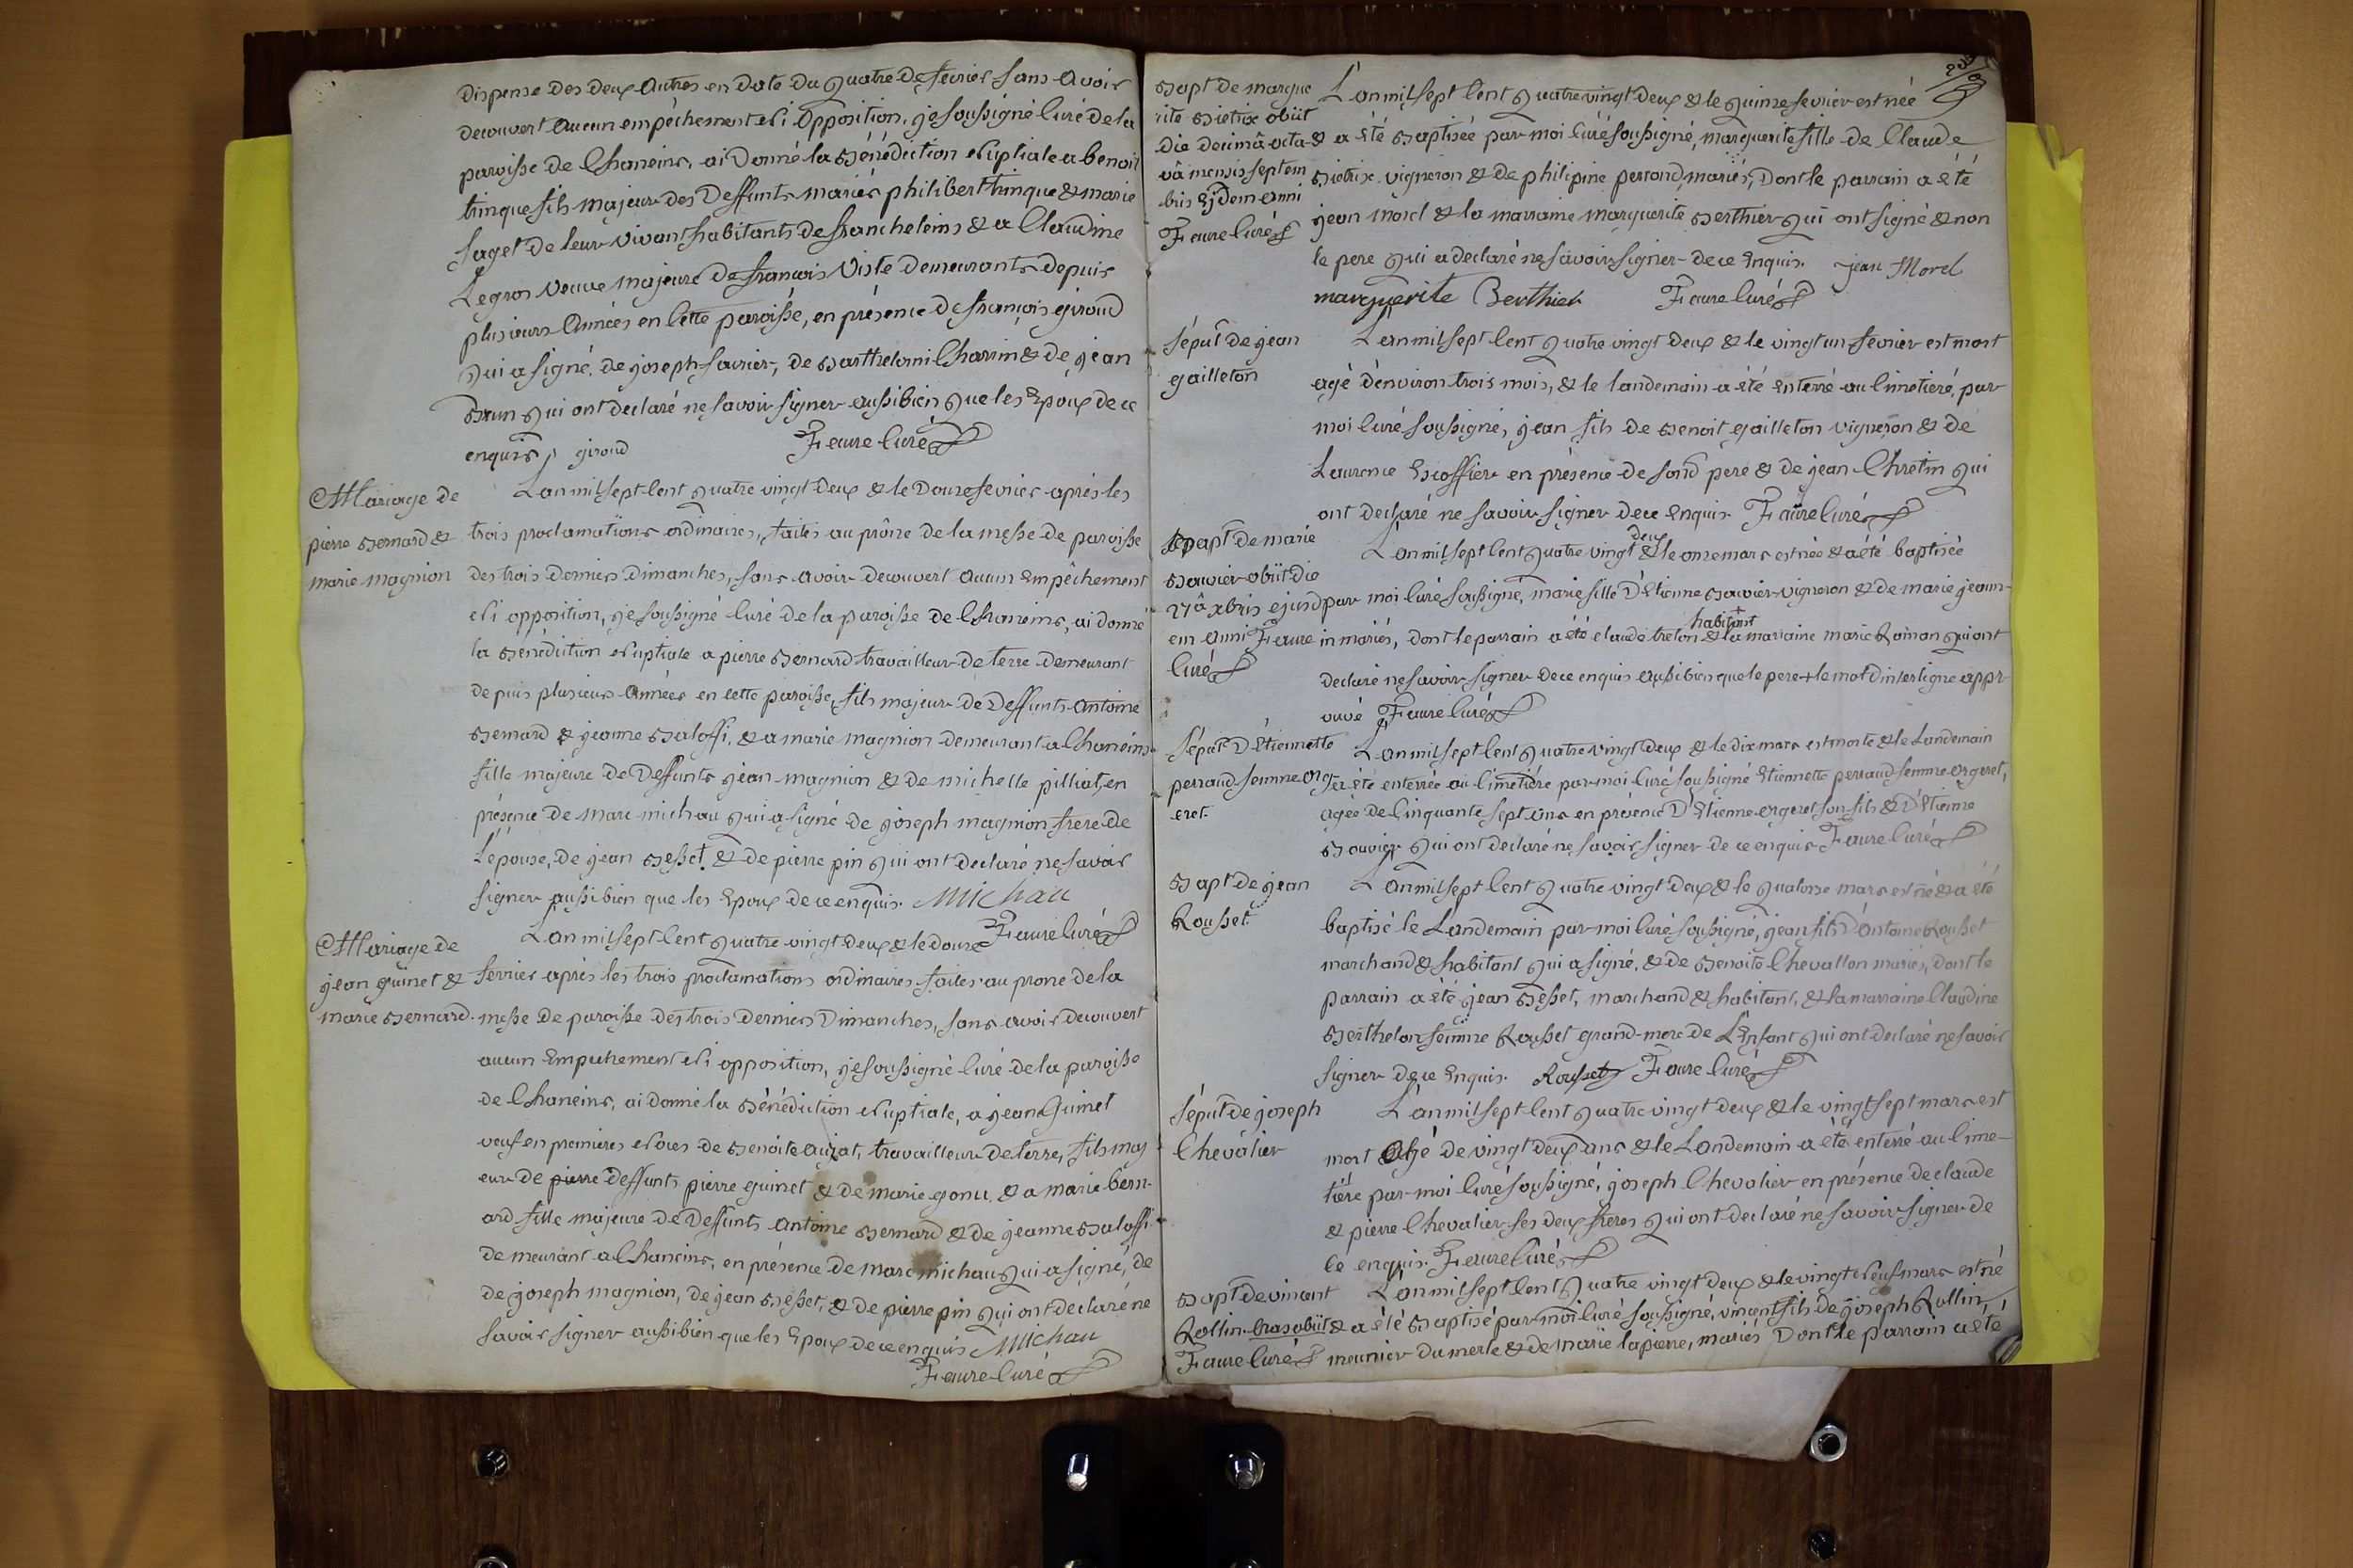 dispense des deux autres en date du quatre de fevrier sans avoir
decouvert aucun empêchement ni opposition, je soussigné curé de la
paroisse de Chaneins, ai donné la Bénédiction Nuptiale a benoit
trinque fils majeur des deffunts mariés philibert trinque & marie
saget de leur vivant habitants de francheleins & a Claudine
Legros veuve majeure de françois viste demeurants depuis
plusieurs années en cette paroisse, en présence de françois giroud
qui a signé, de joseph favrier, de Barthelemi Charrin & de jean
Brun qui ont declaré ne savoir signer aussi bien que les Epoux de ce
enquis, giroud Faure Curé
Mariage de
pierre Bernard &
marie magnion
L'an mil sept cent quatre vingt deux & le douze fevrier après les
trois proclamations ordinaires, faites au prône de la messe de paroisse
des trois derniers Dimanches, sans avoir decouvert aucun Empêchement
ni opposition, je soussigné Curé de la paroisse de Chaneins, ai donné
la Bénédiction Nuptiale a pierre Bernard travailleur de terre demeurant
depuis plusieurs années en cette paroisse, fils majeur de deffunts antoine
Bernard & jeanne Baloffi, & a marie magnion demeurant a Chaneins
fille majeure de deffunts jean magnion & de michelle pilliat, en
présence de marc michau qui a signé de joseph magnion frere de
L'épouse, de jean Besset & de pierre pin qui ont declaré ne savoir
signer aussi bien que les Epoux de ce enquis. Michau
Faure Curé
Mariage de
jean guinet &
marie Bernard.
L'an mil sept cent quatre vingt deux & le douze
fevrier après les trois proclamations ordinaires faites au prone de la
messe de paroisse des trois derniers Dimanches, sans avoir decouvert
aucun Empechement ni opposition, je soussigné Curé de la paroisse
de Chaneins, ai donné la Bénédiction Nuptiale, a jean Guinet
veuf en premieres Noces de Benoite auzat, travailleur de terre, fils maj
eur de pierre deffunts pierre guinet & de marie gonu, & a marie bern-
ard fille majeure de deffunts antoine Bernard & de jeanne Baloffi
demeurant a Chaneins, en présence de marc michau qui a signé, de
de joseph magnion, de jean Besset, & de pierre pin qui ont declaré ne
savoir signer aussi bien que les Epoux de ce enquis Michau
Faure Curé
Bapt de margue
rite Bietrix obiit
die decimâ octa
vâ mensis septem
bris Ejdem anni
Faure Curé
L'an mil sept Cent quatre vingt deux & le quinze fevrier est née
& a été Baptisée par moi Curé soussigné, marguerite fille de Claude
Bietrix vigneron & de philipine perroud, mariés, Dont le parrain a été
jean morel & la marraine marguerite Berthier qui ont signé & non
le pere qui a declaré ne savoir signer de ce Enquis. jean Morel
marguerite Berthier Faure Curé
Sépult de jean
gailleton
L'an mil sept Cent quatre vingt deux & le vingt un fevrier est mort
agé d'environ trois mois, & le landemain a été Enterré au Cimetiere, par
moi Curé soussigné, jean fils de Benoit gailleton vigneron & de
Laurence Escoffier en présence de sond pere & de jean Chretin qui
ont declaré ne savoir signer de ce Enquis. Faure Curé
Bapt de marie
Bouvier obiit die
27â xbris ejusd
em anni Faure
Curé
deux
L'an mil sept cent quatre vingt & le onze mars est née & a été baptisée
par moi Curé soussigné, marie fille D'Etienne Bouvier vigneron & de marie jeann-
habitant
in mariés, dont le parrain a été claude treton & la marraine marie Roman qui ont
declaré ne savoir signer de ce enquis aussi bien que le pere + le mot d'interligne appr-
ouvé Faure Curé
Sépult D'Etiennette
perraud femme org
eret.
L'an mil sept Cent quatre vingt deux & le dix mars est morte & le Landemain
a été enterrée au Cimetiére par moi Curé soussigné Etiennette perraud femme orgeret,
agée de Cinquante sept ans en présence D'Etienne orgeret son fils & D'Etienne
Bouvier qui ont declaré ne savoir signer de ce enquis Faure Curé
Bapt de jean
Rousset
L'an mil sept Cent quatre vingt deux & le quatorze mars est né & a été
baptisé le Landemain par moi Curé soussigné, jean fils d'antoine Rousset
marchand & habitant qui a signé, & de Benoite Chevallon mariés, dont le
parrain a été jean Besset, marchand & habitant, & la marraine Claudine
Berthelon femme Rousset grand-mere de L'Enfant qui ont declaré ne savoir
signer de ce Enquis. Rousset Faure Curé
Sépult de joseph
Chevalier
L'an mil sept Cent quatre vingt deux & le vingt sept mars est
mort Agé de vingt deux ans & le Landemain a été enterré au Cime-
tière par moi Curé soussigné, joseph Chevalier en présence de claude
& pierre Chevalier ses deux freres qui ont declaré ne savoir signer de
ce enquis. Faure Curé
Bapt de vincent
Rollin. cras obiit
Faure Curé
L'an mil sept Cent quatre vingt deux & le vingt Neuf mars est né
& a été Baptisé par moi Curé soussigné, vincent fils de joseph Rollin,
meunier du merle & de marie lapierre, mariés Dont le parrain a été